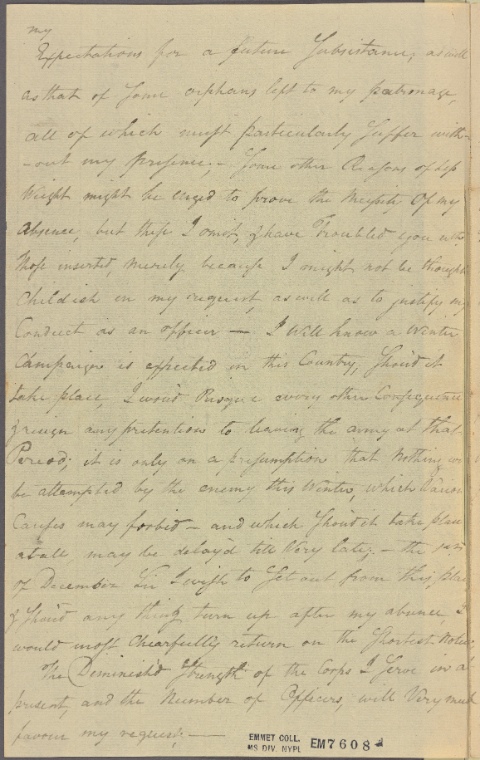 my
Expectations for a future Subsistance, as well
as that of Some orphans left to my patronage,
all of which must particularly Suffer with-
-out my presence; - Some other Reasons of less
Weight might be urged to prove the Necessity Of my
absence, but these I omit, & have Troubled you wth
those inserted, merely because I might not be thought
Childish in my request, as well as to justify my
Conduct as an officer — I Well know a Winter
Campaign is expected in this Country, Shou'd it
take place, I wou'd Risque every other Consequence
& resign any pretention to leaving the army at that
Period; it is only on a presumption that Nothing
be attempted by the enemy this Winter, which Various
Causes may forbid — and which Shou'd it take place
atall may be delay'd till Very late, — the
of December Sir I wish to Set out from this place
& Shou'd any thing turn up after my absence, I
would most Chearfully return on the Shortest Notice,
The Diminish'd Strength of the Corps I Serve in at
present, and the Number of Officers, will Very much
favour my request; —
EMMET COLL.
MS DIV. NYPL
EM7608